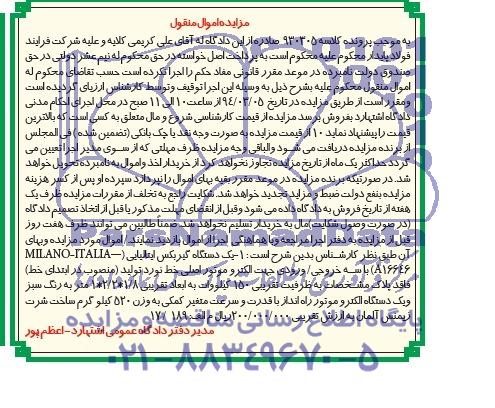 مزایده اموال منقول
به موجب پرونده کلاسه ۹۳۰۳۰۵ صادره از این دادگاه له آقای علی کریمی کلایه و علیه شرکت فرایند
فولاد پایدار محکوم علیه محکوم است به پرداخت اصل خواسته در حق محکوم له نیم عشر دولتی در حق
صندوق دولت نامبرده در موعد مقرر قانونی مفاد حکم را اجرا نکرده است حسب تقاضای محکوم له
اموال منقول محکوم علیه بشرح ذیل به وسیله این اجرا توقیف و توسط کارشناس ارزیابی گردیده است
ومقرر است از طریق مزایده در تاریخ ۹۴/۰۳/۰۵ از ساعت ۱۰ الی ۱۱ صبح در محل اجرای احکام مدنی
دادگاه اشتهارد بفروش برسد مزایده از قیمت کارشناسی شروع و مال متعلق به کسی است که بالاترین
قیمت را پیشنهاد نماید ۱۰٪ از قیمت مزایده به صورت وجه نقد یا چک بانکی (تضمین شده) فی المجلس
از برنده مزایده دریافت می شود والباقی وجه مزایده ظرف مهلتی که از سوی مدیر اجرا تعیین می
گردد حداکثر یک ماه از تاریخ مزایده تجاوز نخواهد کرد از خریدار اخذ واموال به نامبرده تحویل خواهد
شد. در صورتیکه برنده مزایده در موعد مقرر بقیه بهای اموال را نپردازد سپرده او پس از کسر هزینه
مزایده بنفع دولت ضبط و مزاید تجدید خواهد شد. شکایت راجع به تخلف از مقررات مزایده ظرف یک
هفته از تاریخ فروش به دادگاه داده می شود وقبل از انقضای مهلت مذکور یا قبل از اتخاذ تصمیم دادگاه
(در صورت وصول شکایت) مال به خریدار تسلیم نخواهد شد. ضمناً طالبین می توانند ظرف هفت روز
قبل از مزایده به دفتر اجرا مراجعه وبا هماهنگی اجرا از اموال بازدید نمایند./ اموال مورد مزایده وبهای
آن طبق نظر کارشناس بدین شرح است: ۱-یک دستگاه گیربکس ایتالیایی (MILANO-ITALIA–
A۱۶۶۴۶) با سه خروجی / ورودی جهت الکترو موتور اصلی خط نورد تولید (منصوب در ابتدای خط)
فاقد پلاک مشخصات به ظرفیت تقریبی ۱۵۰ کیلووات به ابعاد تقریبی ۱/۸*۱/۲*۱ متر به رنگ سبز
ویک دستگاه الکترو موتور راه انداز با قدرت و سرعت متغیر کمکی به وزن ۵۲۰ کیلو گرم ساخت شرت
زیمنس آلمان به ارزش تقریبی ۲۰۰/۰۰۰/۰۰۰ ریال م الف: ۱۷/۱۸۹
مدیر دفتر دادگاه عمومی اشتهارد- اعظم پور
پایگاه اطلاع رسانی مناقصه و مزایده
۰۲۱-۸۸۳۴۹۶۷۰-۵